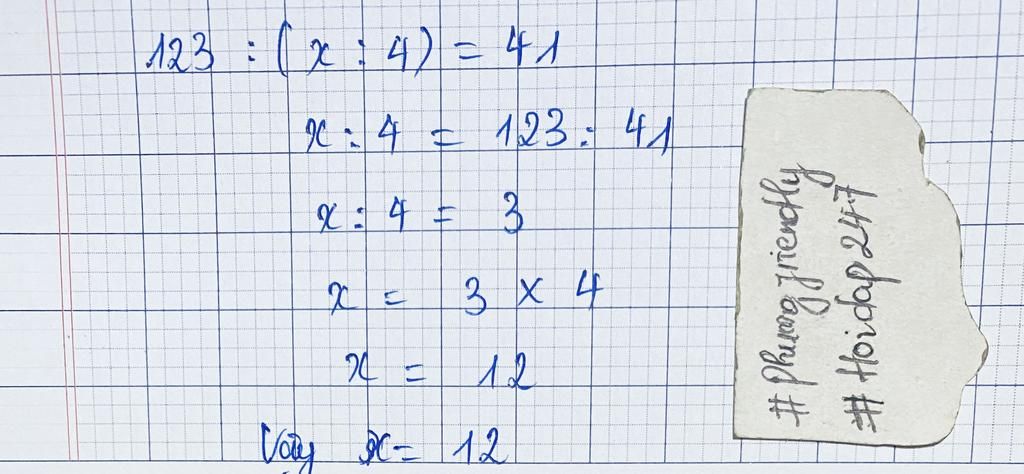 123 : ( x : 4 ) = 41
x : 4 = 123 : 41
x : 4 = 3
x = 3 x 4
x = 12
Vậy x = 12
# phuongfriendly
# Hoidap247